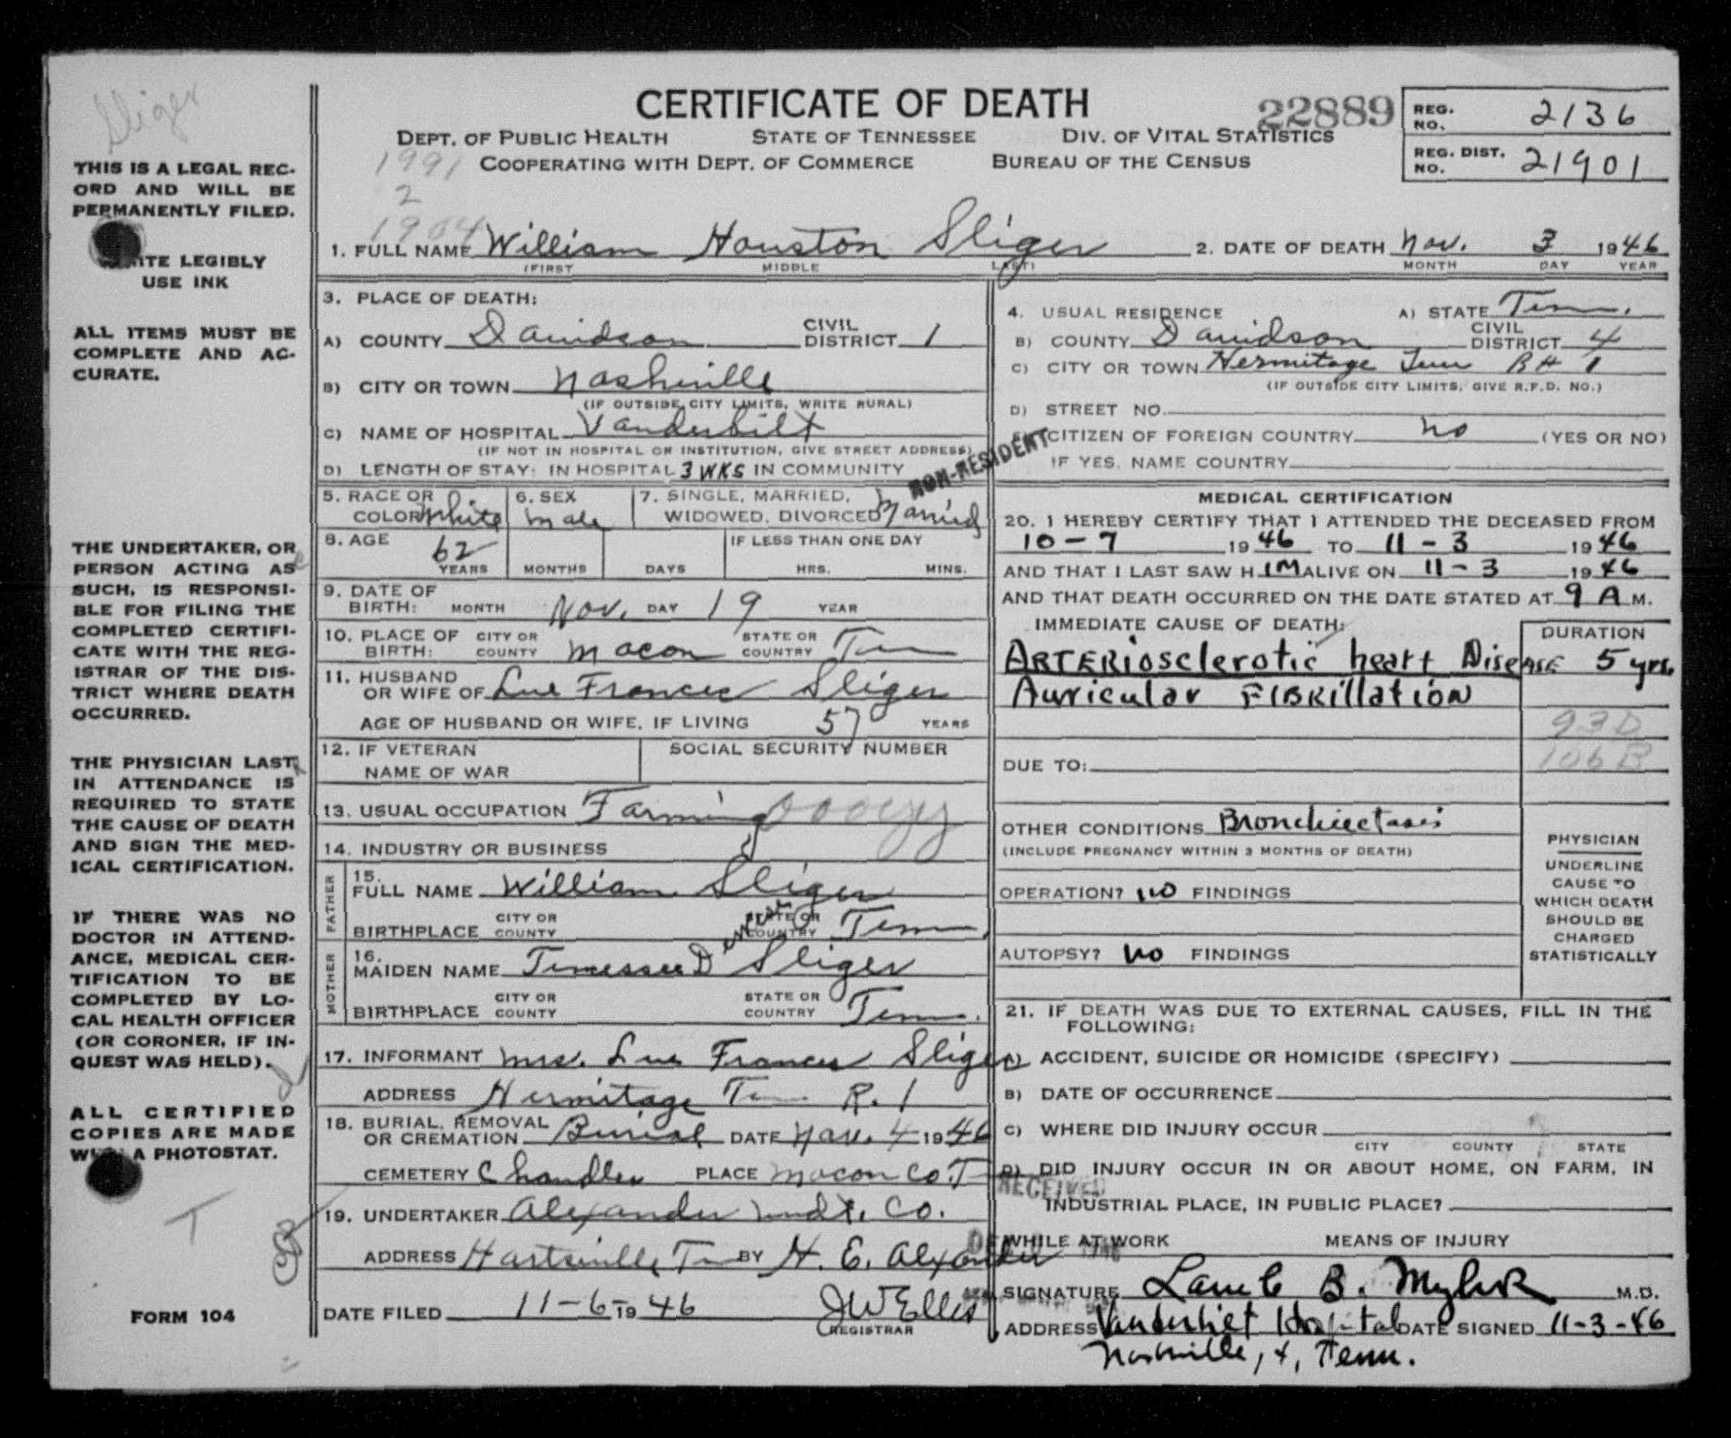 Sliger
THIS IS A LEGAL REC-
ORD AND WILL BE
PERMANENTLY FILED.
ITE LEGIBLY
USE INK
ALL ITEMS MUST BE
COMPLETE AND AC-
CURATE.
THE UNDERTAKER, OR
PERSON ACTING AS
SUCH, IS RESPONSI-
BLE FOR FILING THE
COMPLETED CERTIFI-
CATE WITH THE REG-
ISTRAR OF THE DIS-
TRICT WHERE DEATH
OCCURRED.
THE PHYSICIAN LAST
IN ATTENDANCE IS
REQUIRED TO STATE
THE CAUSE OF DEATH
AND SIGN THE MED-
ICAL CERTIFICATION.
IF THERE WAS NO
DOCTOR IN ATTEND-
ANCE, MEDICAL CER-
TIFICATION TO BE
COMPLETED BY LO-
CAL HEALTH OFFICER
(OR CORONER, IF IN-
QUEST WAS HELD).
ALL CERTIFIED
COPIES ARE MADE
A PHOTOSTAT.
T
FORM 104
CERTIFICATE OF DEATH
22889
REG. NO. 2136
DEPT. OF PUBLIC HEALTH STATE OF TENNESSEE DIV. OF VITAL STATISTICS
COOPERATING WITH DEPT. OF COMMERCE BUREAU OF THE CENSUS
REG. DIST. NO. 21901
1991
2
1904
1. FULL NAME William Houston Sliger 2. DATE OF DEATH Nov. 3 1946
(FIRST MIDDLE LAST) MONTH DAY YEAR
3. PLACE OF DEATH:
A) COUNTY Davidson CIVIL DISTRICT 1
B) CITY OR TOWN Nashville
(IF OUTSIDE CITY LIMITS, WRITE RURAL)
C) NAME OF HOSPITAL Vanderbilt
(IF NOT IN HOSPITAL OR INSTITUTION, GIVE STREET ADDRESS)
D) LENGTH OF STAY: IN HOSPITAL 3 WKS IN COMMUNITY
NON-RESIDENT
4. USUAL RESIDENCE A) STATE Tenn.
B) COUNTY Davidson CIVIL DISTRICT 4
C) CITY OR TOWN Hermitage Tenn R# 1
(IF OUTSIDE CITY LIMITS, GIVE R.F.D. NO.)
D) STREET NO.
CITIZEN OF FOREIGN COUNTRY no (YES OR NO)
IF YES, NAME COUNTRY
5. RACE OR COLOR White 6. SEX male 7. SINGLE, MARRIED, WIDOWED, DIVORCED Married
8. AGE 62 YEARS MONTHS DAYS IF LESS THAN ONE DAY HRS. MINS.
9. DATE OF BIRTH: MONTH Nov. DAY 19 YEAR
10. PLACE OF BIRTH: CITY OR COUNTY Macon STATE OR COUNTRY Tenn
11. HUSBAND OR WIFE OF Lue Frances Sliger
AGE OF HUSBAND OR WIFE, IF LIVING 57 YEARS
12. IF VETERAN NAME OF WAR SOCIAL SECURITY NUMBER
13. USUAL OCCUPATION Farming
14. INDUSTRY OR BUSINESS
FATHER
15. FULL NAME William Sliger
BIRTHPLACE CITY OR COUNTY STATE OR COUNTRY Tenn.
MOTHER
16. MAIDEN NAME Tennessee D Sliger
BIRTHPLACE CITY OR COUNTY STATE OR COUNTRY Tenn.
17. INFORMANT Mrs. Lue Frances Sliger
ADDRESS Hermitage Tenn R. 1
18. BURIAL, REMOVAL OR CREMATION Burial DATE Nov. 4 1946
CEMETERY Chandler PLACE Macon Co. T
19. UNDERTAKER Alexander Undt. Co.
ADDRESS Hartsville Tn BY H. E. Alexander
DATE FILED 11-6-1946 JW Ellis
REGISTRAR
MEDICAL CERTIFICATION
20. I HEREBY CERTIFY THAT I ATTENDED THE DECEASED FROM
10-7 1946 TO 11-3 1946
AND THAT I LAST SAW HIM ALIVE ON 11-3 1946
AND THAT DEATH OCCURRED ON THE DATE STATED AT 9 A M.
IMMEDIATE CAUSE OF DEATH: DURATION
ARTERIOsclerotic heart Disease 5 yrs.
Auricular FIBRillation
93D
106B
DUE TO:
OTHER CONDITIONS Bronchiectasis
(INCLUDE PREGNANCY WITHIN 3 MONTHS OF DEATH)
OPERATION? NO FINDINGS
AUTOPSY? NO FINDINGS
PHYSICIAN
UNDERLINE
CAUSE TO
WHICH DEATH
SHOULD BE
CHARGED
STATISTICALLY
21. IF DEATH WAS DUE TO EXTERNAL CAUSES, FILL IN THE
FOLLOWING:
A) ACCIDENT, SUICIDE OR HOMICIDE (SPECIFY)
B) DATE OF OCCURRENCE
C) WHERE DID INJURY OCCUR
CITY COUNTY STATE
D) DID INJURY OCCUR IN OR ABOUT HOME, ON FARM, IN
RECEIVED
INDUSTRIAL PLACE, IN PUBLIC PLACE?
WHILE AT WORK MEANS OF INJURY
SIGNATURE M.D.
ADDRESS Vanderbilt Hospital DATE SIGNED 11-3-46
Nashville, 4, Tenn.